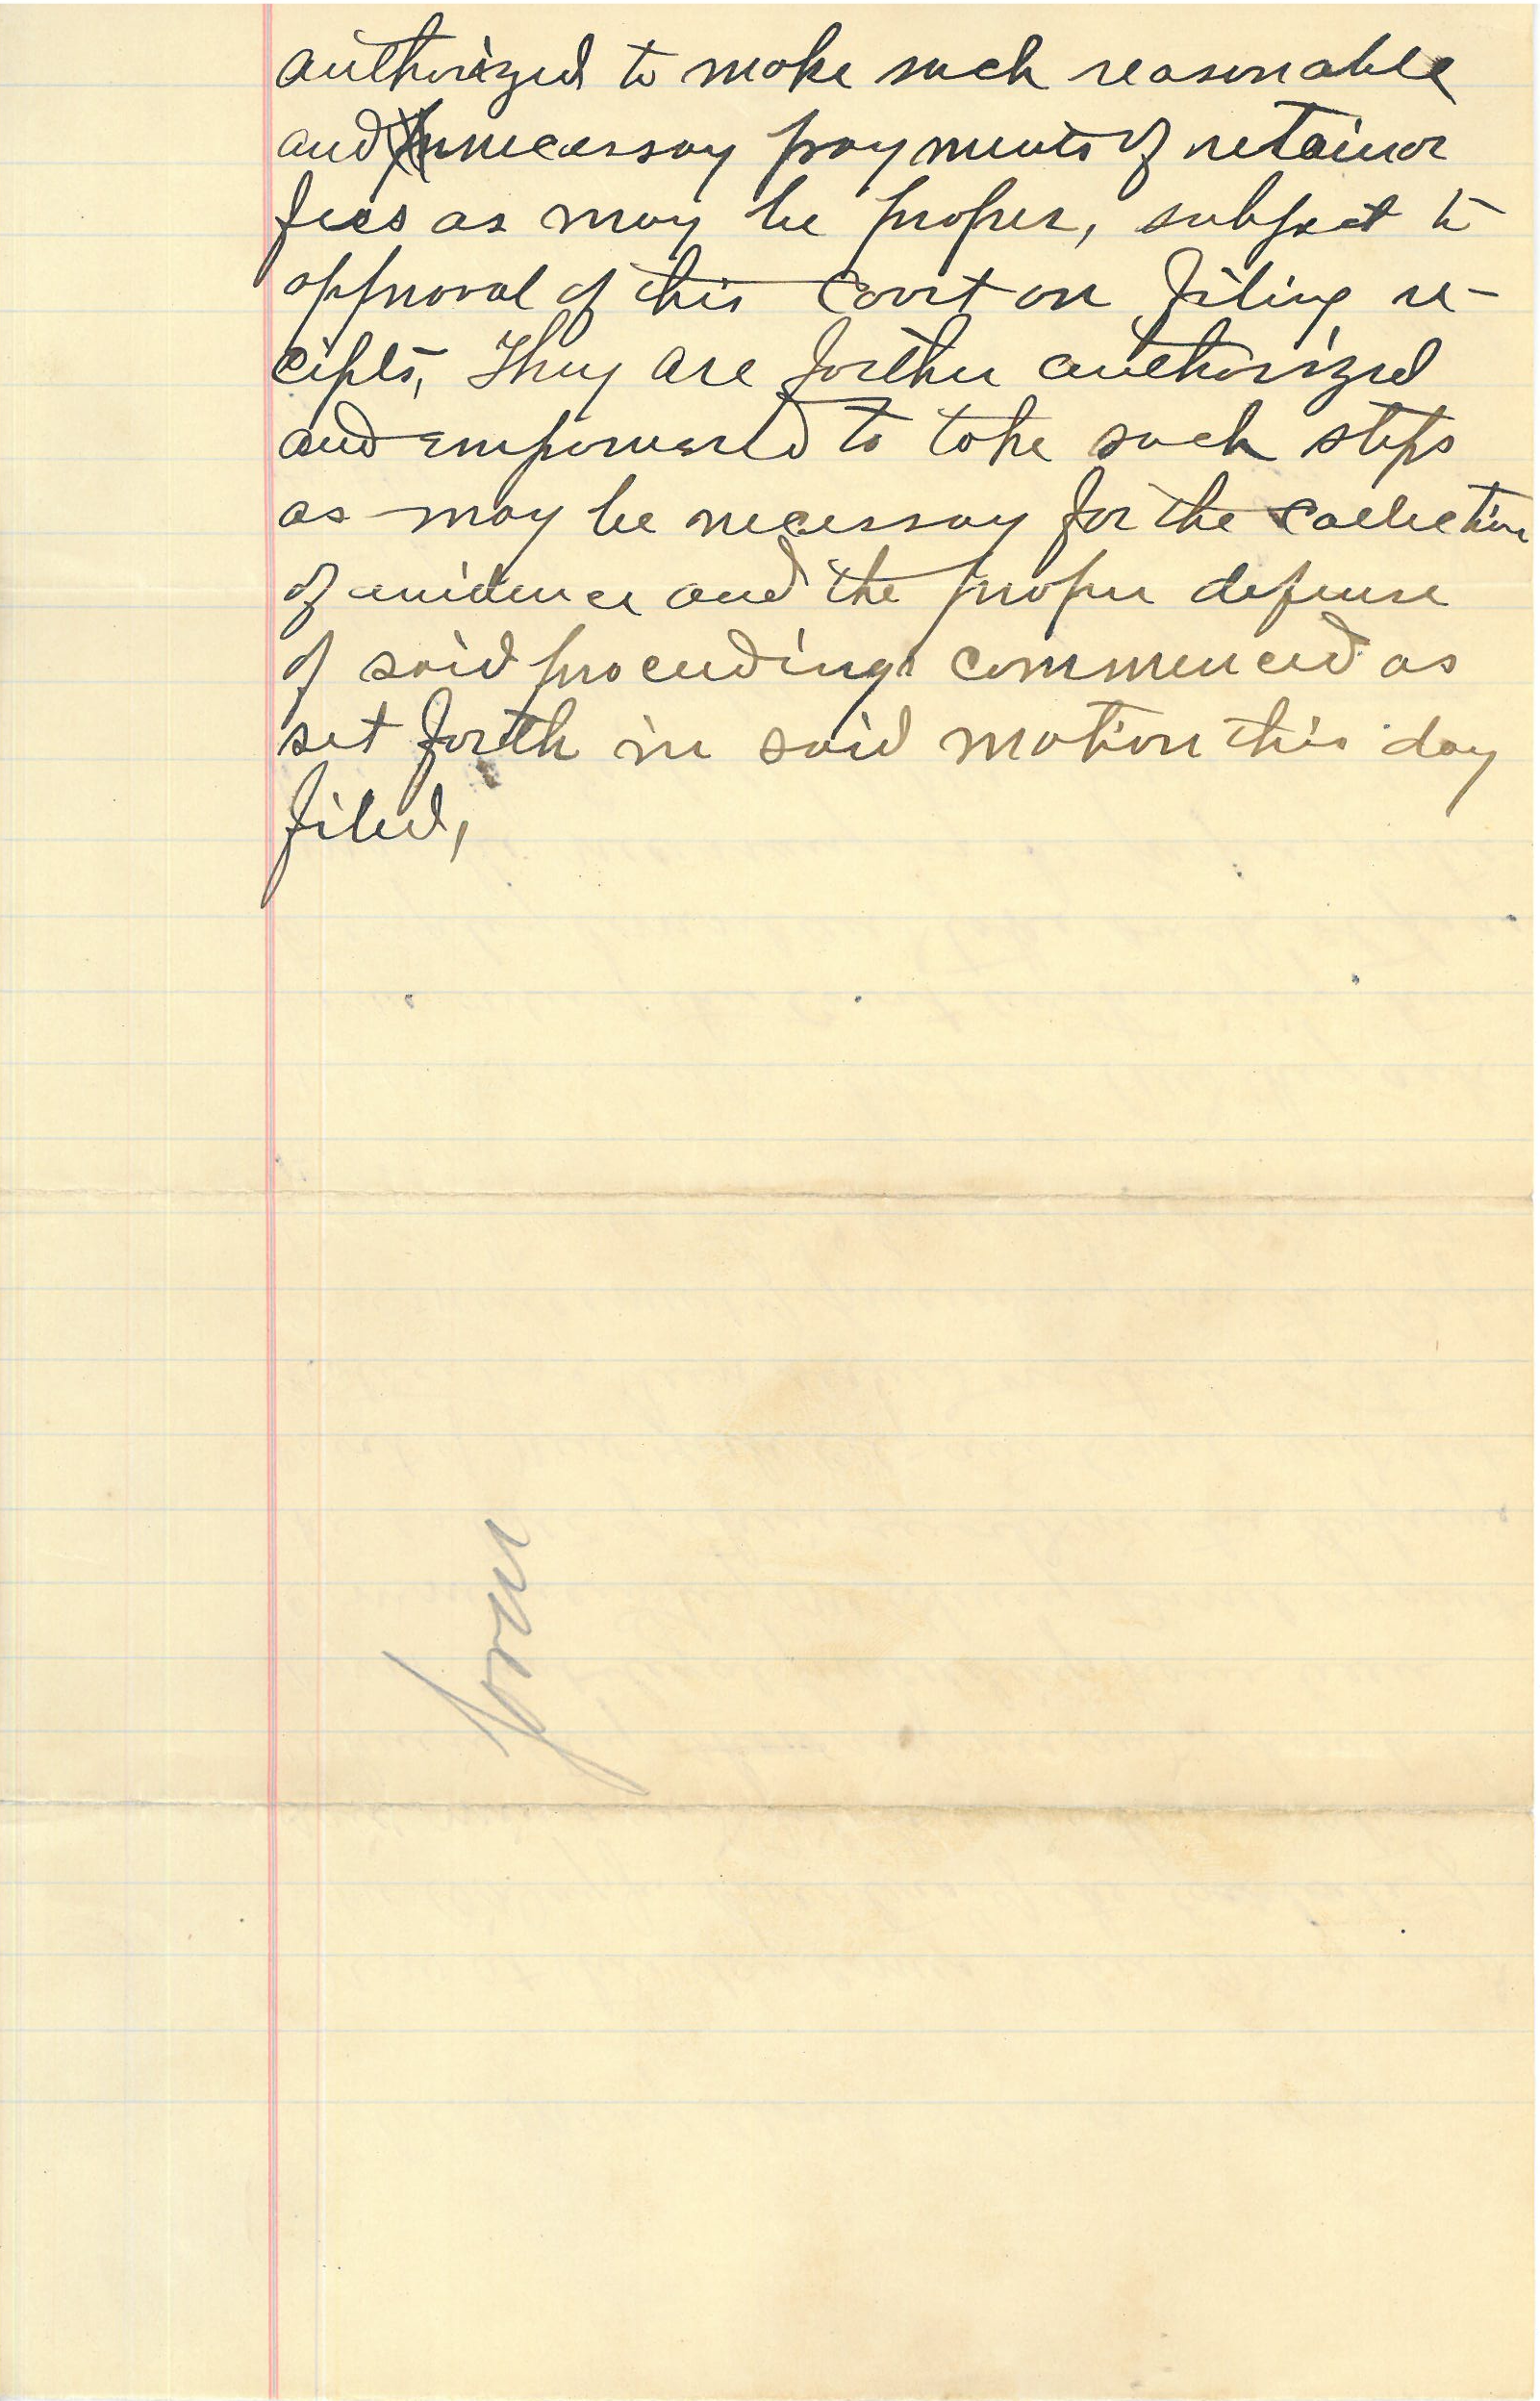 authorized to make such reasonable
and necessary payments of retainer
fees as may be proper, subject to
approval of this Court on filing re-
cipts, They are further authorized
and empowered to take such steps
as may be necessary for the collection
of evidence and the proper defense
of said proceedings commenced as
set forth in said motion this day
filed,
form